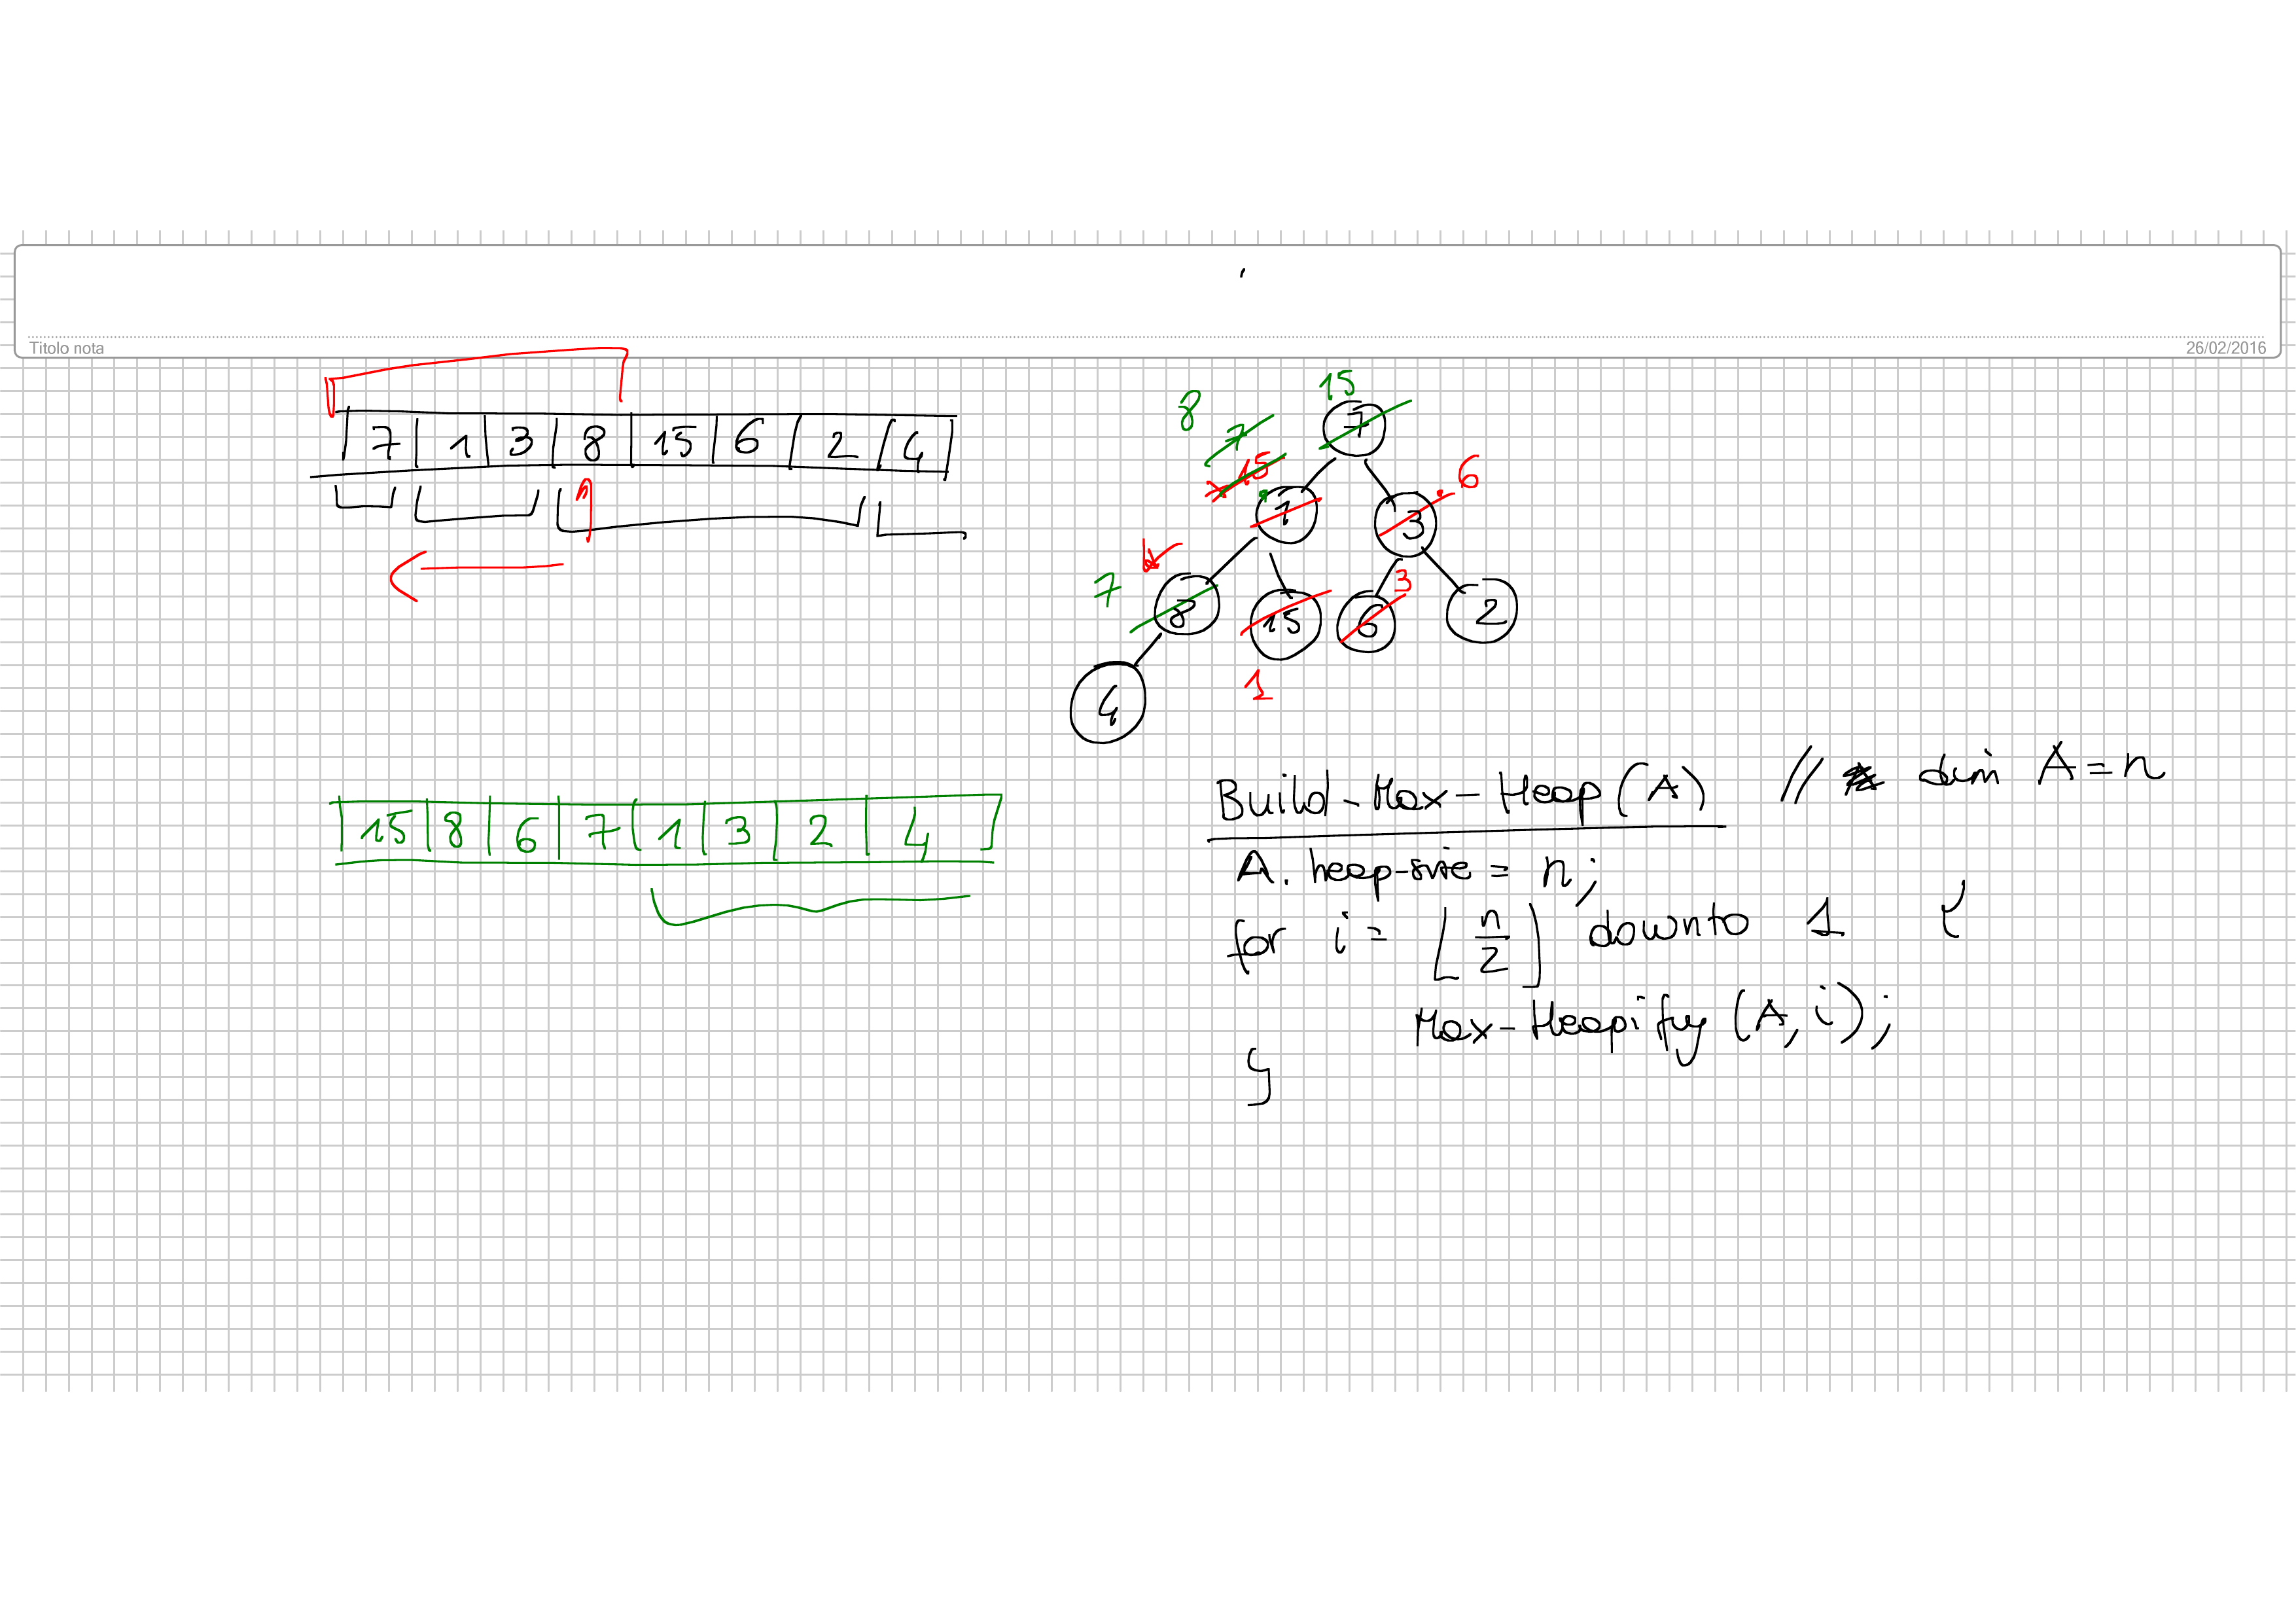 Titolo nota
26/02/2016
7 1 3 8 15 6 2 4
15
8
7
7
15
6
1
3
7
8
15
6
3
2
1
4
15 8 6 7 1 3 2 4
Build-Max-Heap(A) // dim A=n
A. heap-size = n;
for i = ⌊n/2⌋ downto 1 {
Max-Heapify (A, i);
}